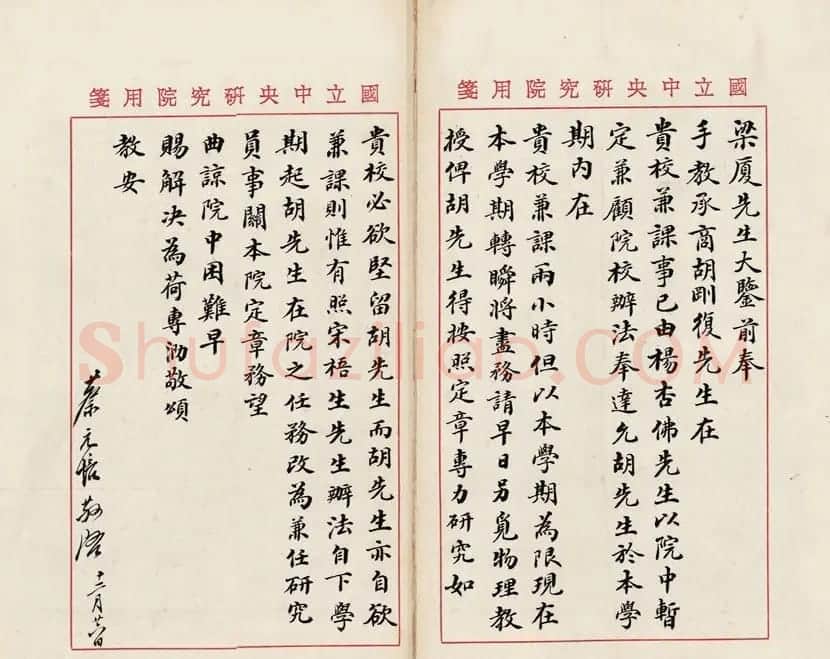 國立中央研究院用箋
梁厦先生大鑒前奉
手教承商胡剛復先生在
貴校兼課事已由楊杏佛先生以院中暫
定兼顧院校辦法奉達允胡先生於本學
期內在
貴校兼課兩小時但以本學期為限現在
本學期轉瞬將盡務請早日另覓物理教
授俾胡先生得按照定章專力研究如
國立中央研究院用箋
貴校必欲堅留胡先生而胡先生亦自欲
兼課則惟有照宋梧生先生辦法自下學
期起胡先生在院之任務改為兼任研究
員事關本院定章務望
曲諒院中困難早
賜解決為荷專泐敬頌
教安
蔡元培敬啓
Shufaziliao.COM